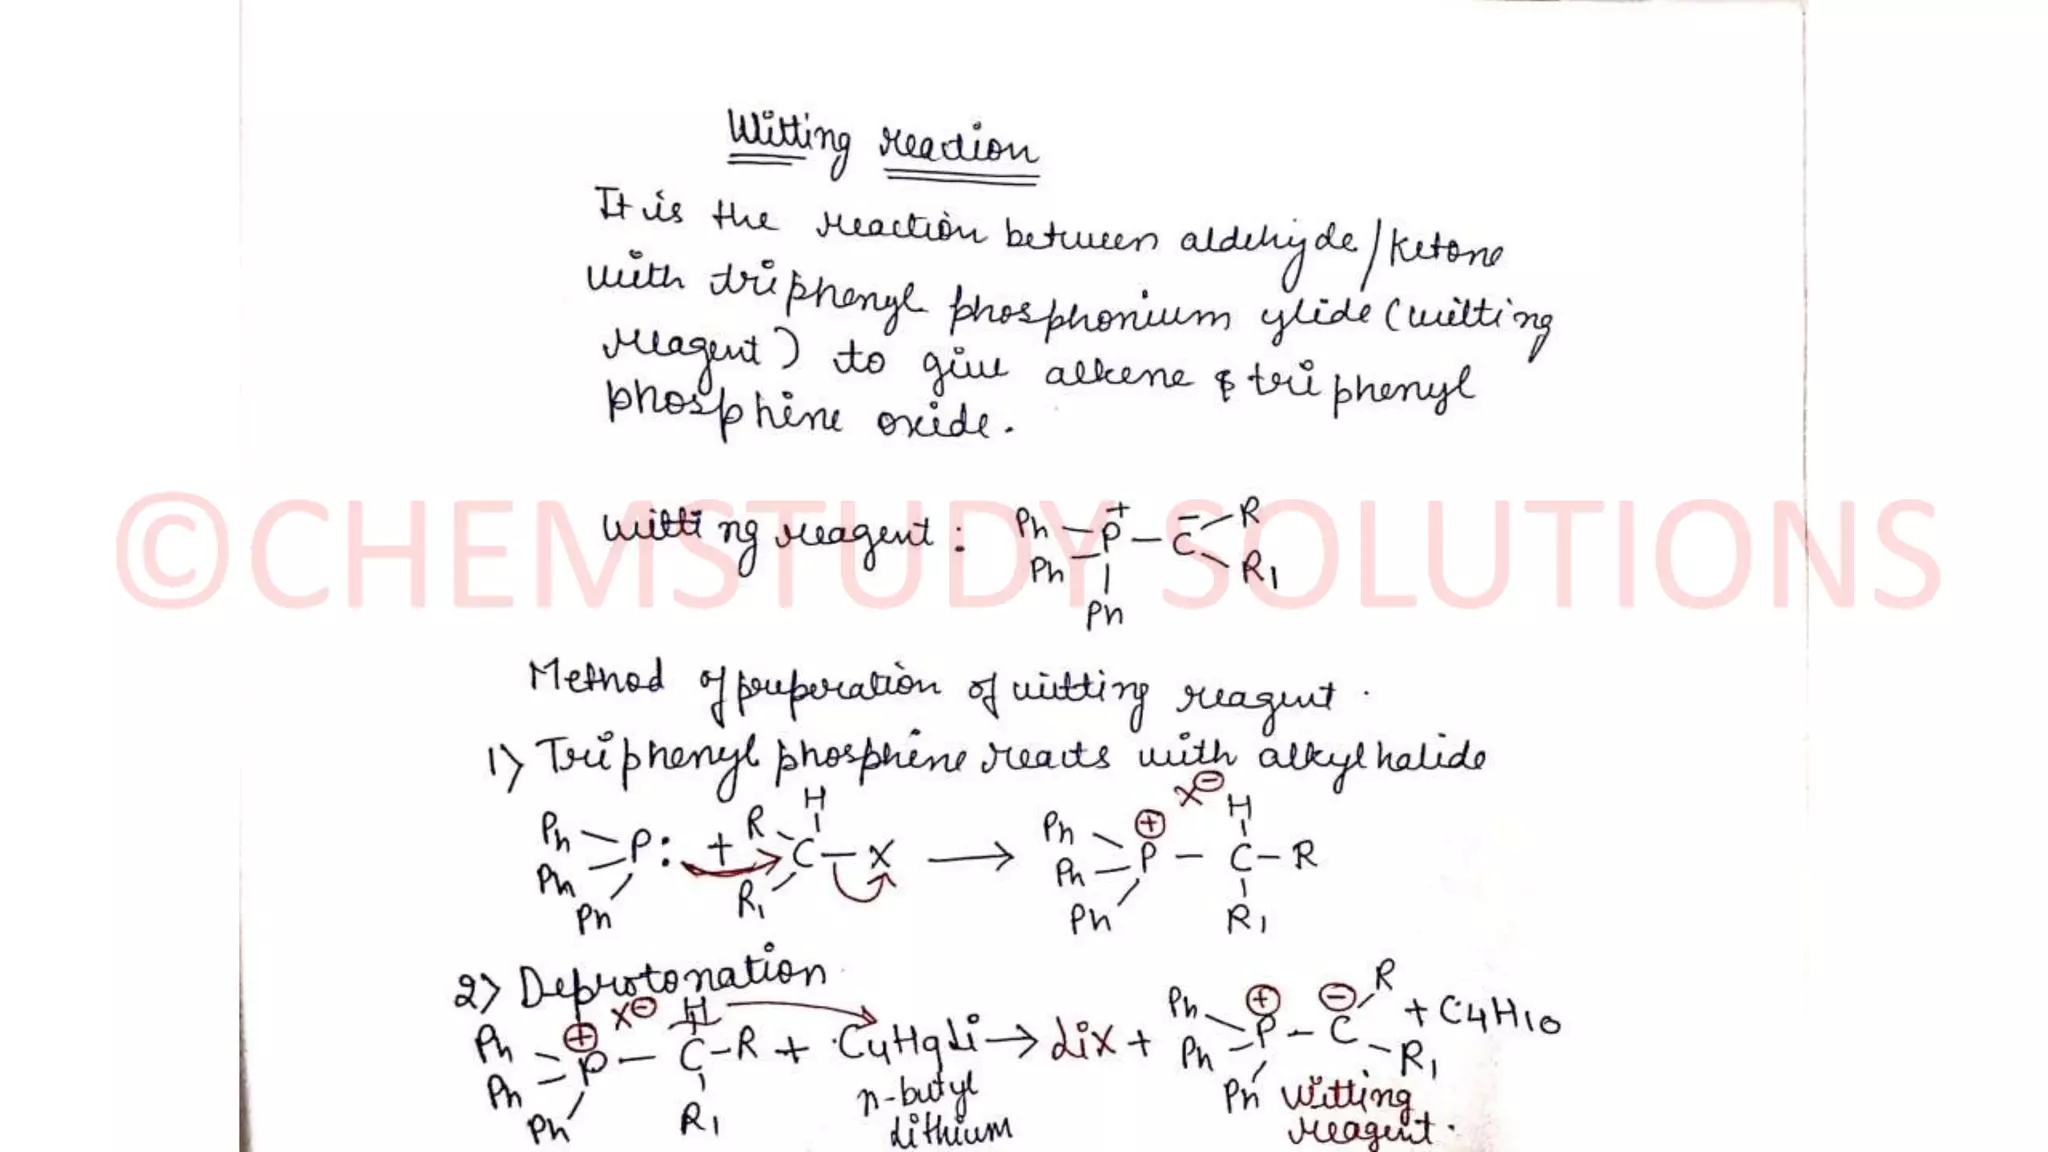 Witting reaction
It is the reaction between aldehyde/ketone
with triphenyl phosphonium ylide (witting
reagent) to give alkene & triphenyl
phosphine oxide.
©CHEMSTUDY SOLUTIONS
witting reagent : Ph Ph Ph P+ — C− R R1
Method of preperation of witting reagent.
1) Triphenyl phosphine reacts with alkyl halide
Ph Ph Ph P: + R R1 H C — X → Ph Ph Ph P⊕ X⊖ — C H — R R1
2) Deprotonation
Ph Ph Ph P⊕ X⊖ — C H — R R1 + C4H9Li → LiX + Ph Ph Ph P⊕ — C⊖ R R1 + C4H10
n-butyl
Lithium
Witting
reagent.